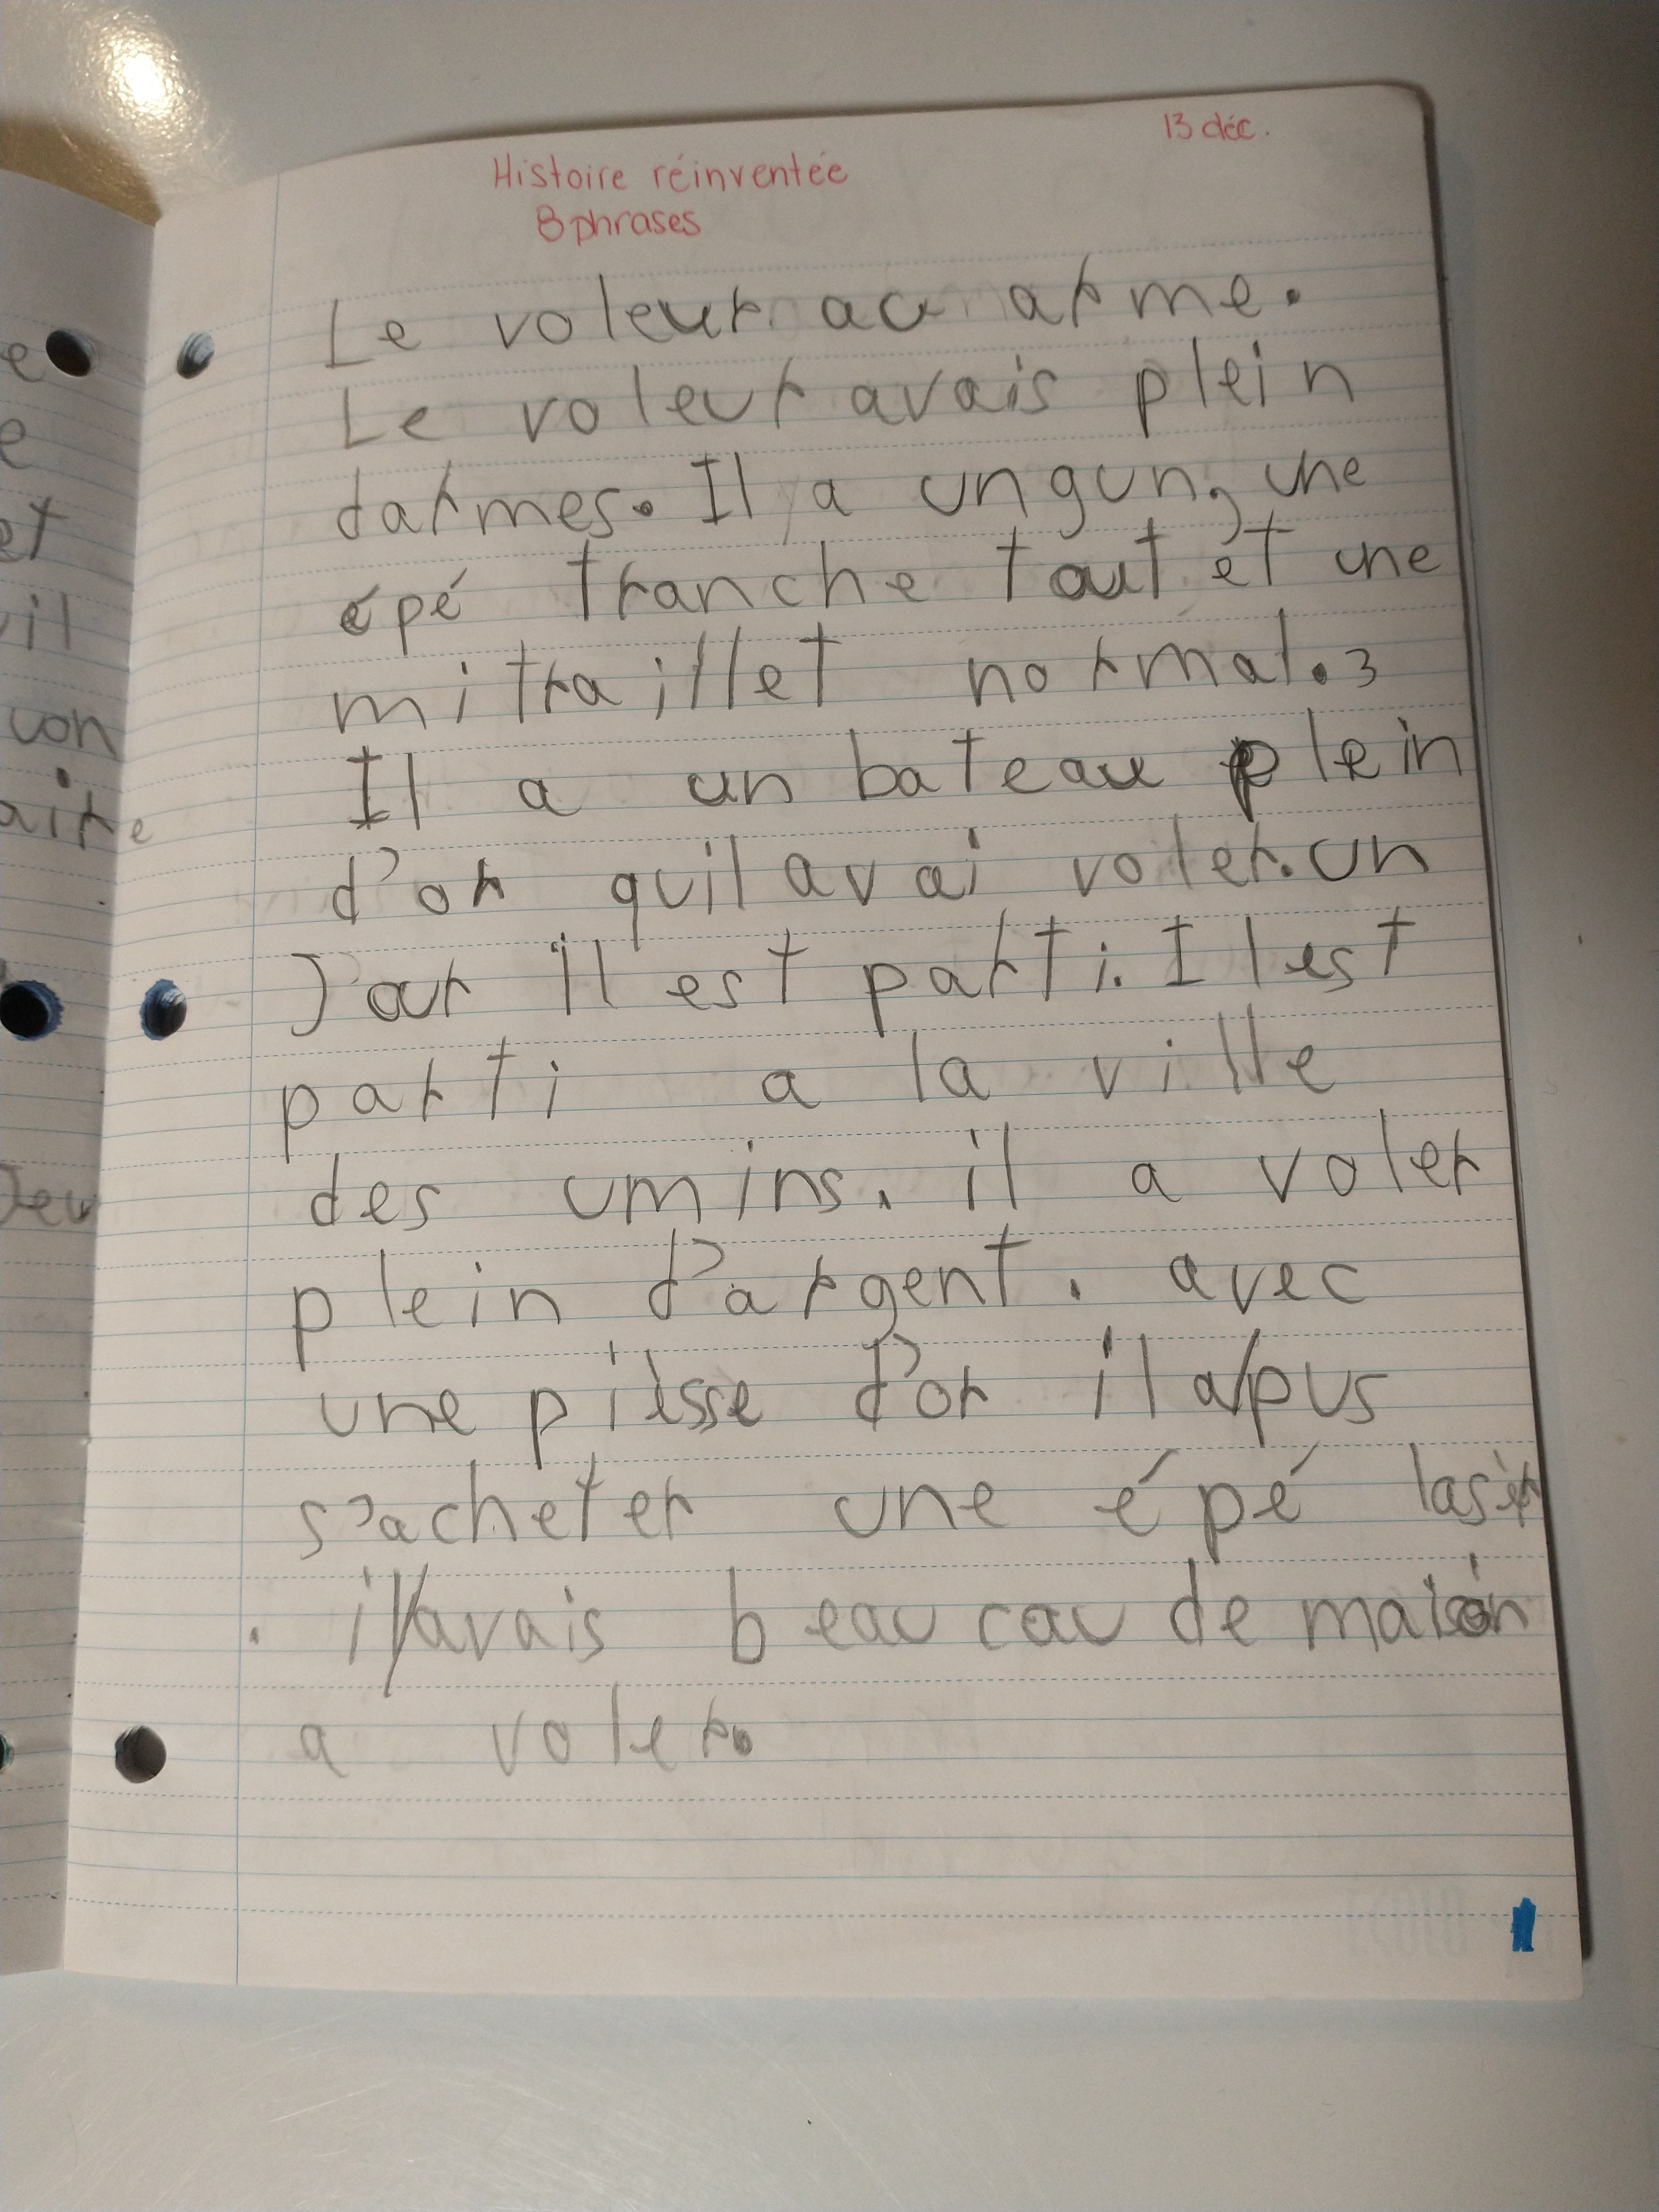 13 déc.
Histoire réinventée
8 phrases
Le voleur au arme.
Le voleur avais plein
darmes. Il a un gun, une
épé tranche tout et une
mitraillet normal. 3
Il a un bateau plein
d'or quil avai voler. un
Jour il est parti. Il est
parti a la ville
des umins. il a voler
plein d'argent. avec
une pièsse d'or il a pus
s'acheter une épé lasèr
. il avais beaucau de maison
a voler.
e
e
et
il
von
aire
Jeu